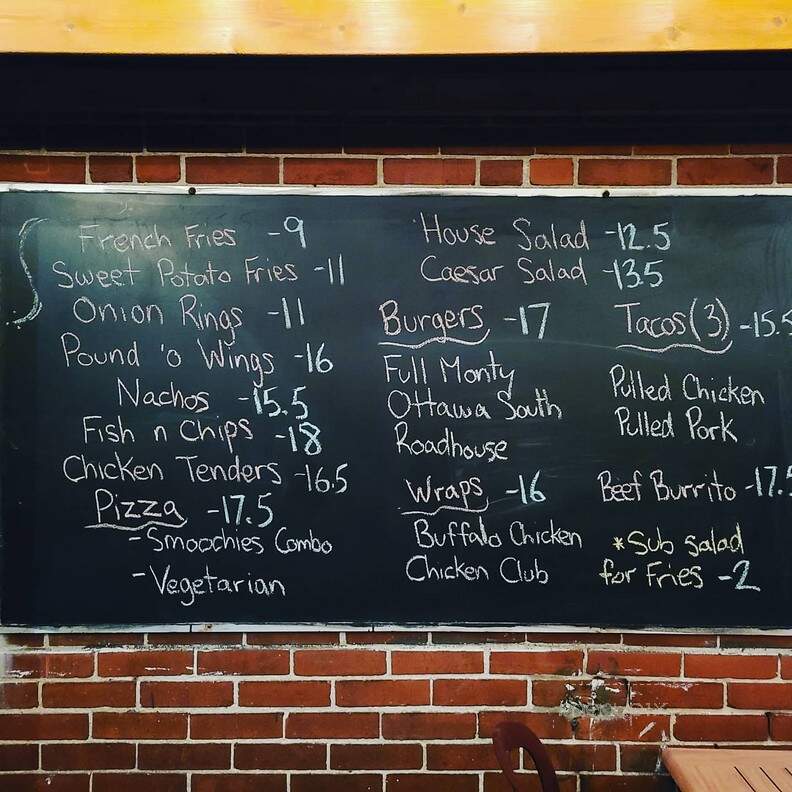 French Fries -9
Sweet Potato Fries -11
Onion Rings -11
Pound 'o Wings -16
Nachos -15.5
Fish n Chips -18
Chicken Tenders -16.5
Pizza -17.5
-Smoochies Combo
-Vegetarian
House Salad -12.5
Caesar Salad -13.5
Burgers -17
Full Monty
Ottawa South
Roadhouse
Wraps -16
Buffalo Chicken
Chicken Club
Tacos (3) -15.5
Pulled Chicken
Pulled Pork
Beef Burrito -17.5
*Sub salad
for Fries -2